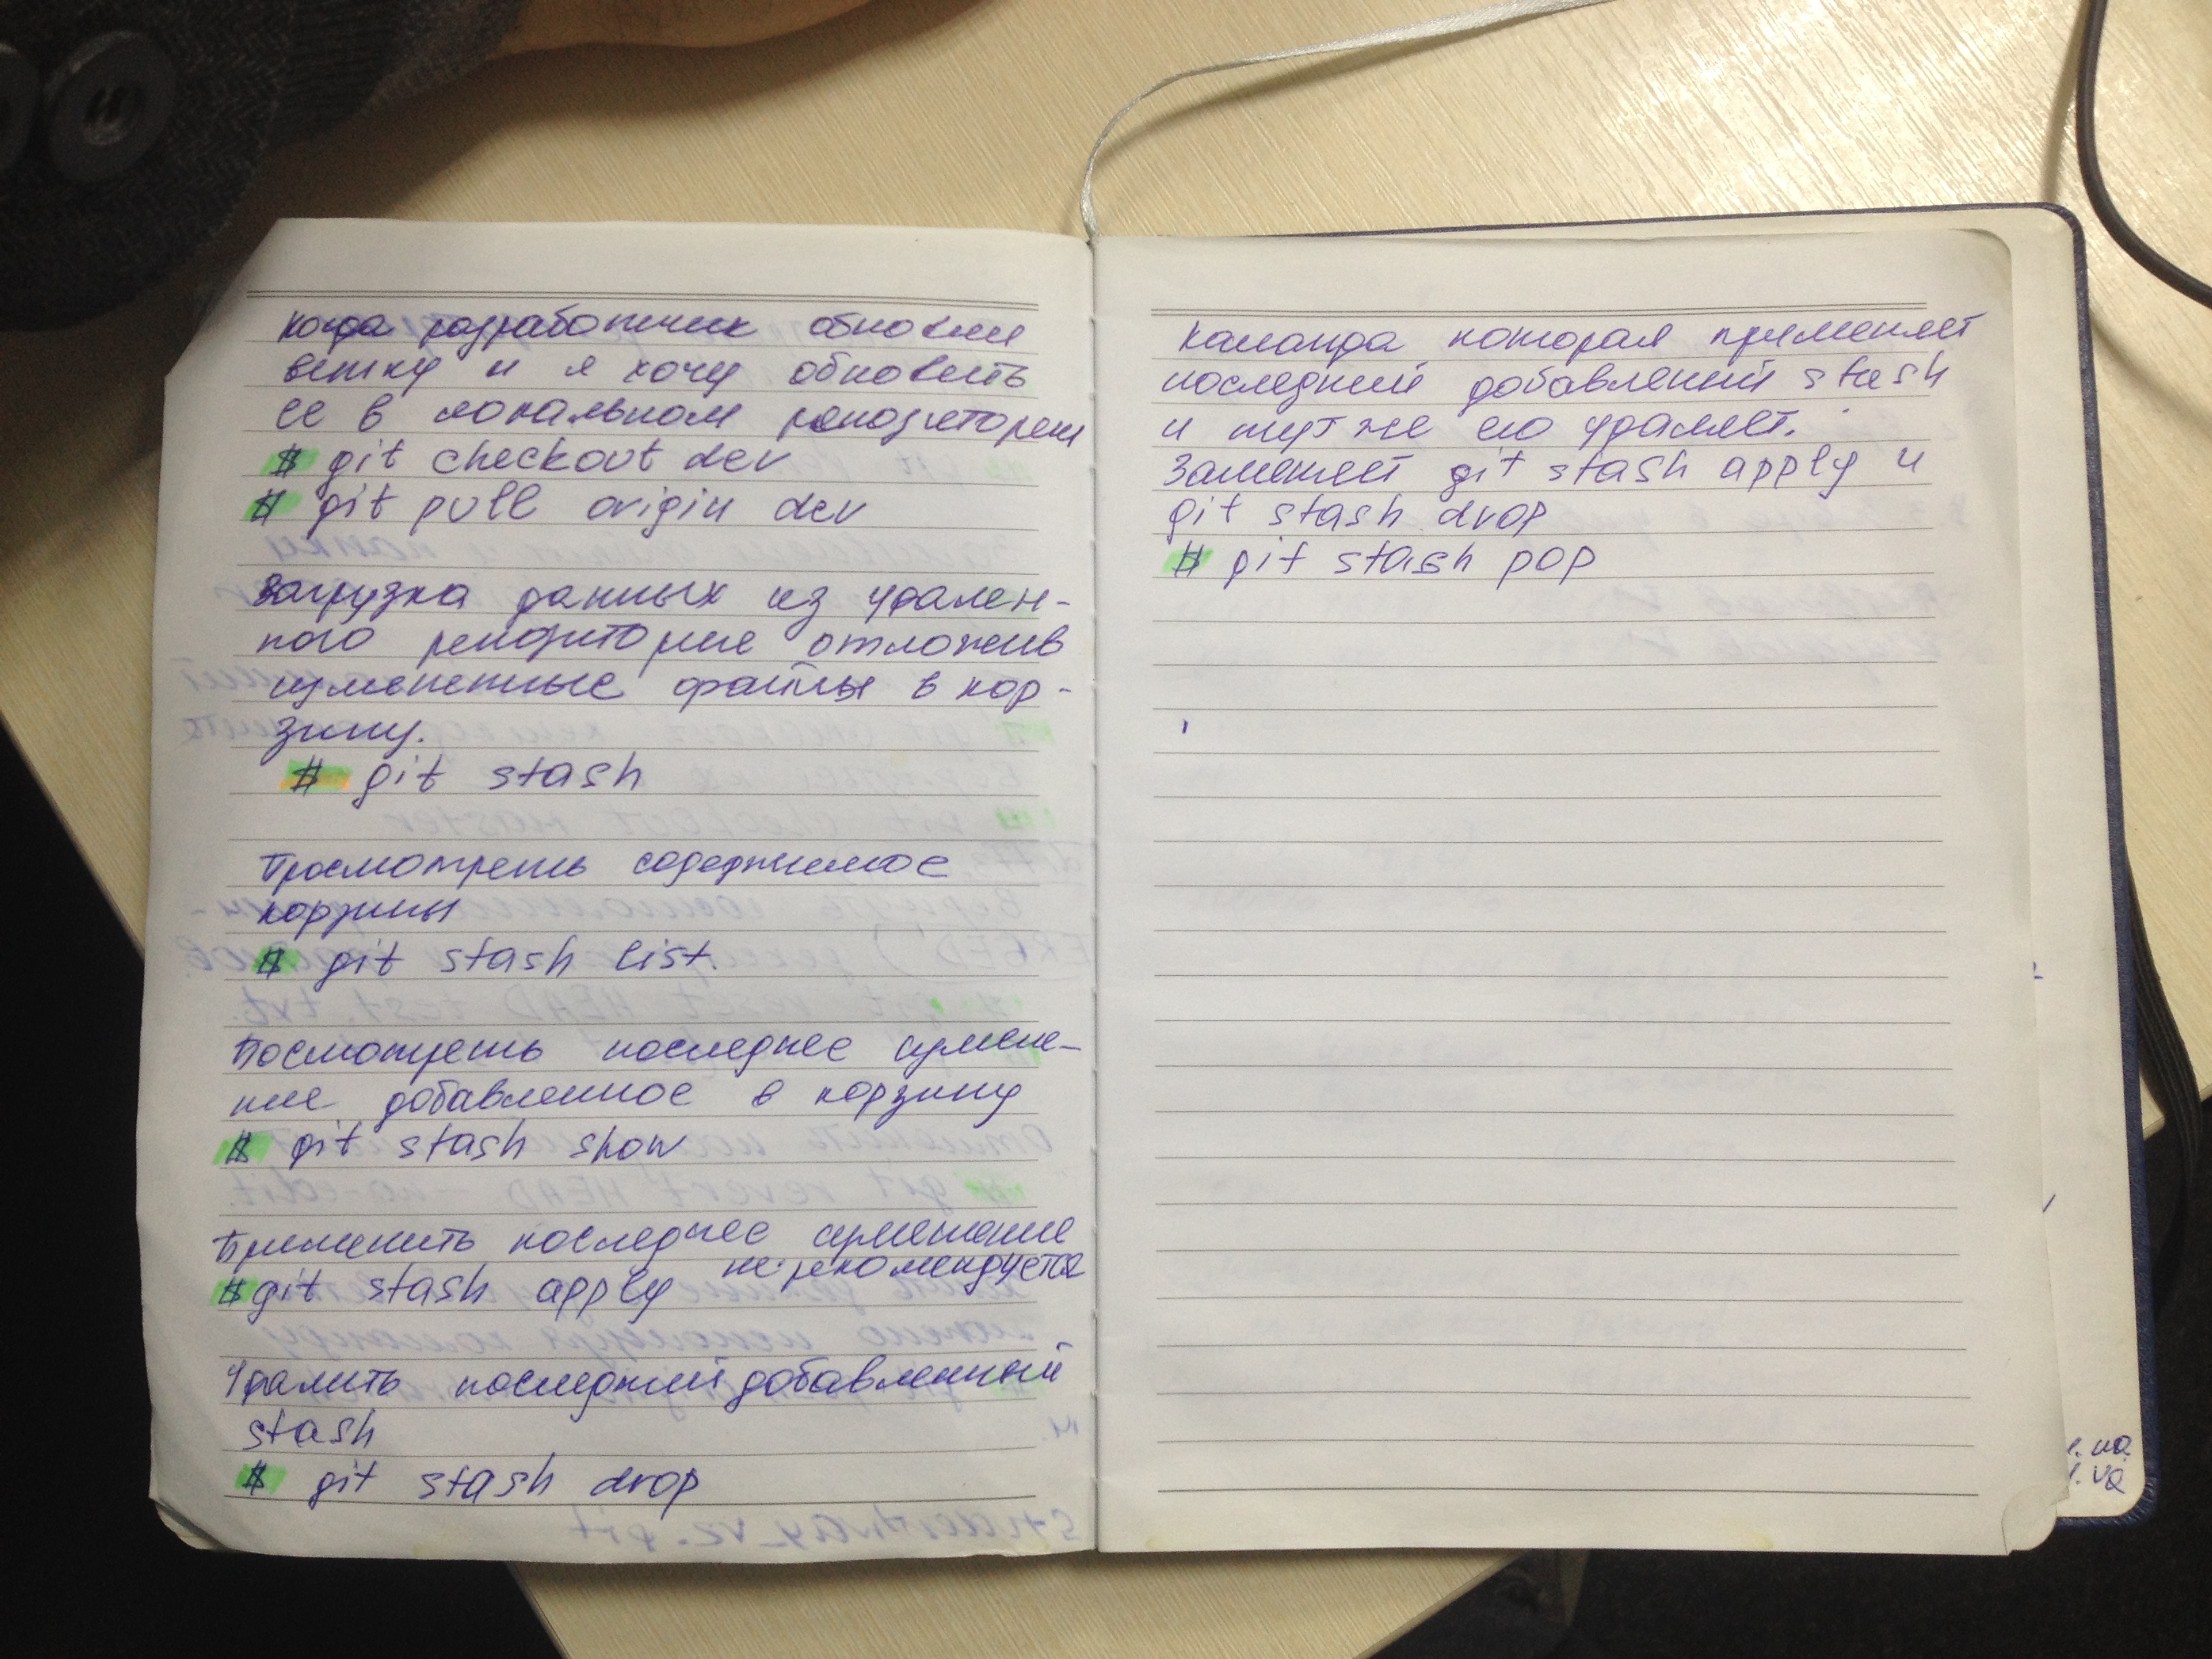 когда разработчик обновляет
ветку и я хочу обновить
ее в локальном репозитории
# git checkout dev
# git pull origin dev
Выгрузка данных из удален-
ного репозитория отложив
измененные файлы в кор-
зину.
# git stash
Просмотреть содержимое
корзины
# git stash list
Посмотреть последнее измене-
ние добавленное в корзину
# git stash show
Применить последнее изменение
# git stash apply не рекомендуется
Удалить последний добавленный
stash
# git stash drop
Команда которая применяет
последний добавленный stash
и тут же его удаляет.
Заменяет git stash apply и
git stash drop
# git stash pop